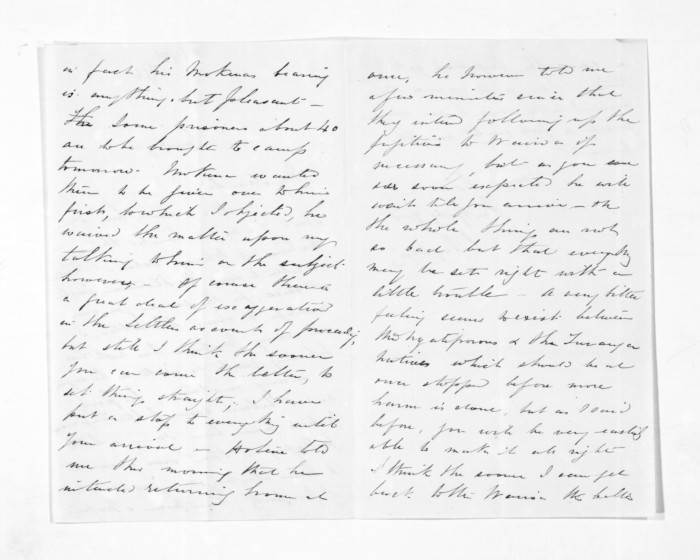 in fact his Mokenas bearing
is anything but pleasant –
The Some prisoners about 40
are to be brought to camp
tomorrow. Mokena wanted
them to be given over to him
first, to which I objected, he
waived the matter upon my
talking to him on the subject
however – Of course there is
a great deal of exaggeration
in the settlers accounts of proceedgs,
but still I think the sooner
you can come the better, to
set things straight; I have
put a stop to everything until
your arrival – Hotene told
me this morning that he
intended returning home at
once, he however told me
a few minutes since that
they intend following up the
fugitives to Wairoa if
necessary, but as you are
so soon expected he will
wait till you arrive – On
the whole things are not
so bad but that everything
may be set right with a
little trouble – A very bitter
feeling seems to exist between
the Ngatiporous & the Turanga
Natives which should be at
once stopped before more
harm is done, but as I said
before, you will be very easily
able to make it all right
I think the sooner I can get
back to the Wairoa the better